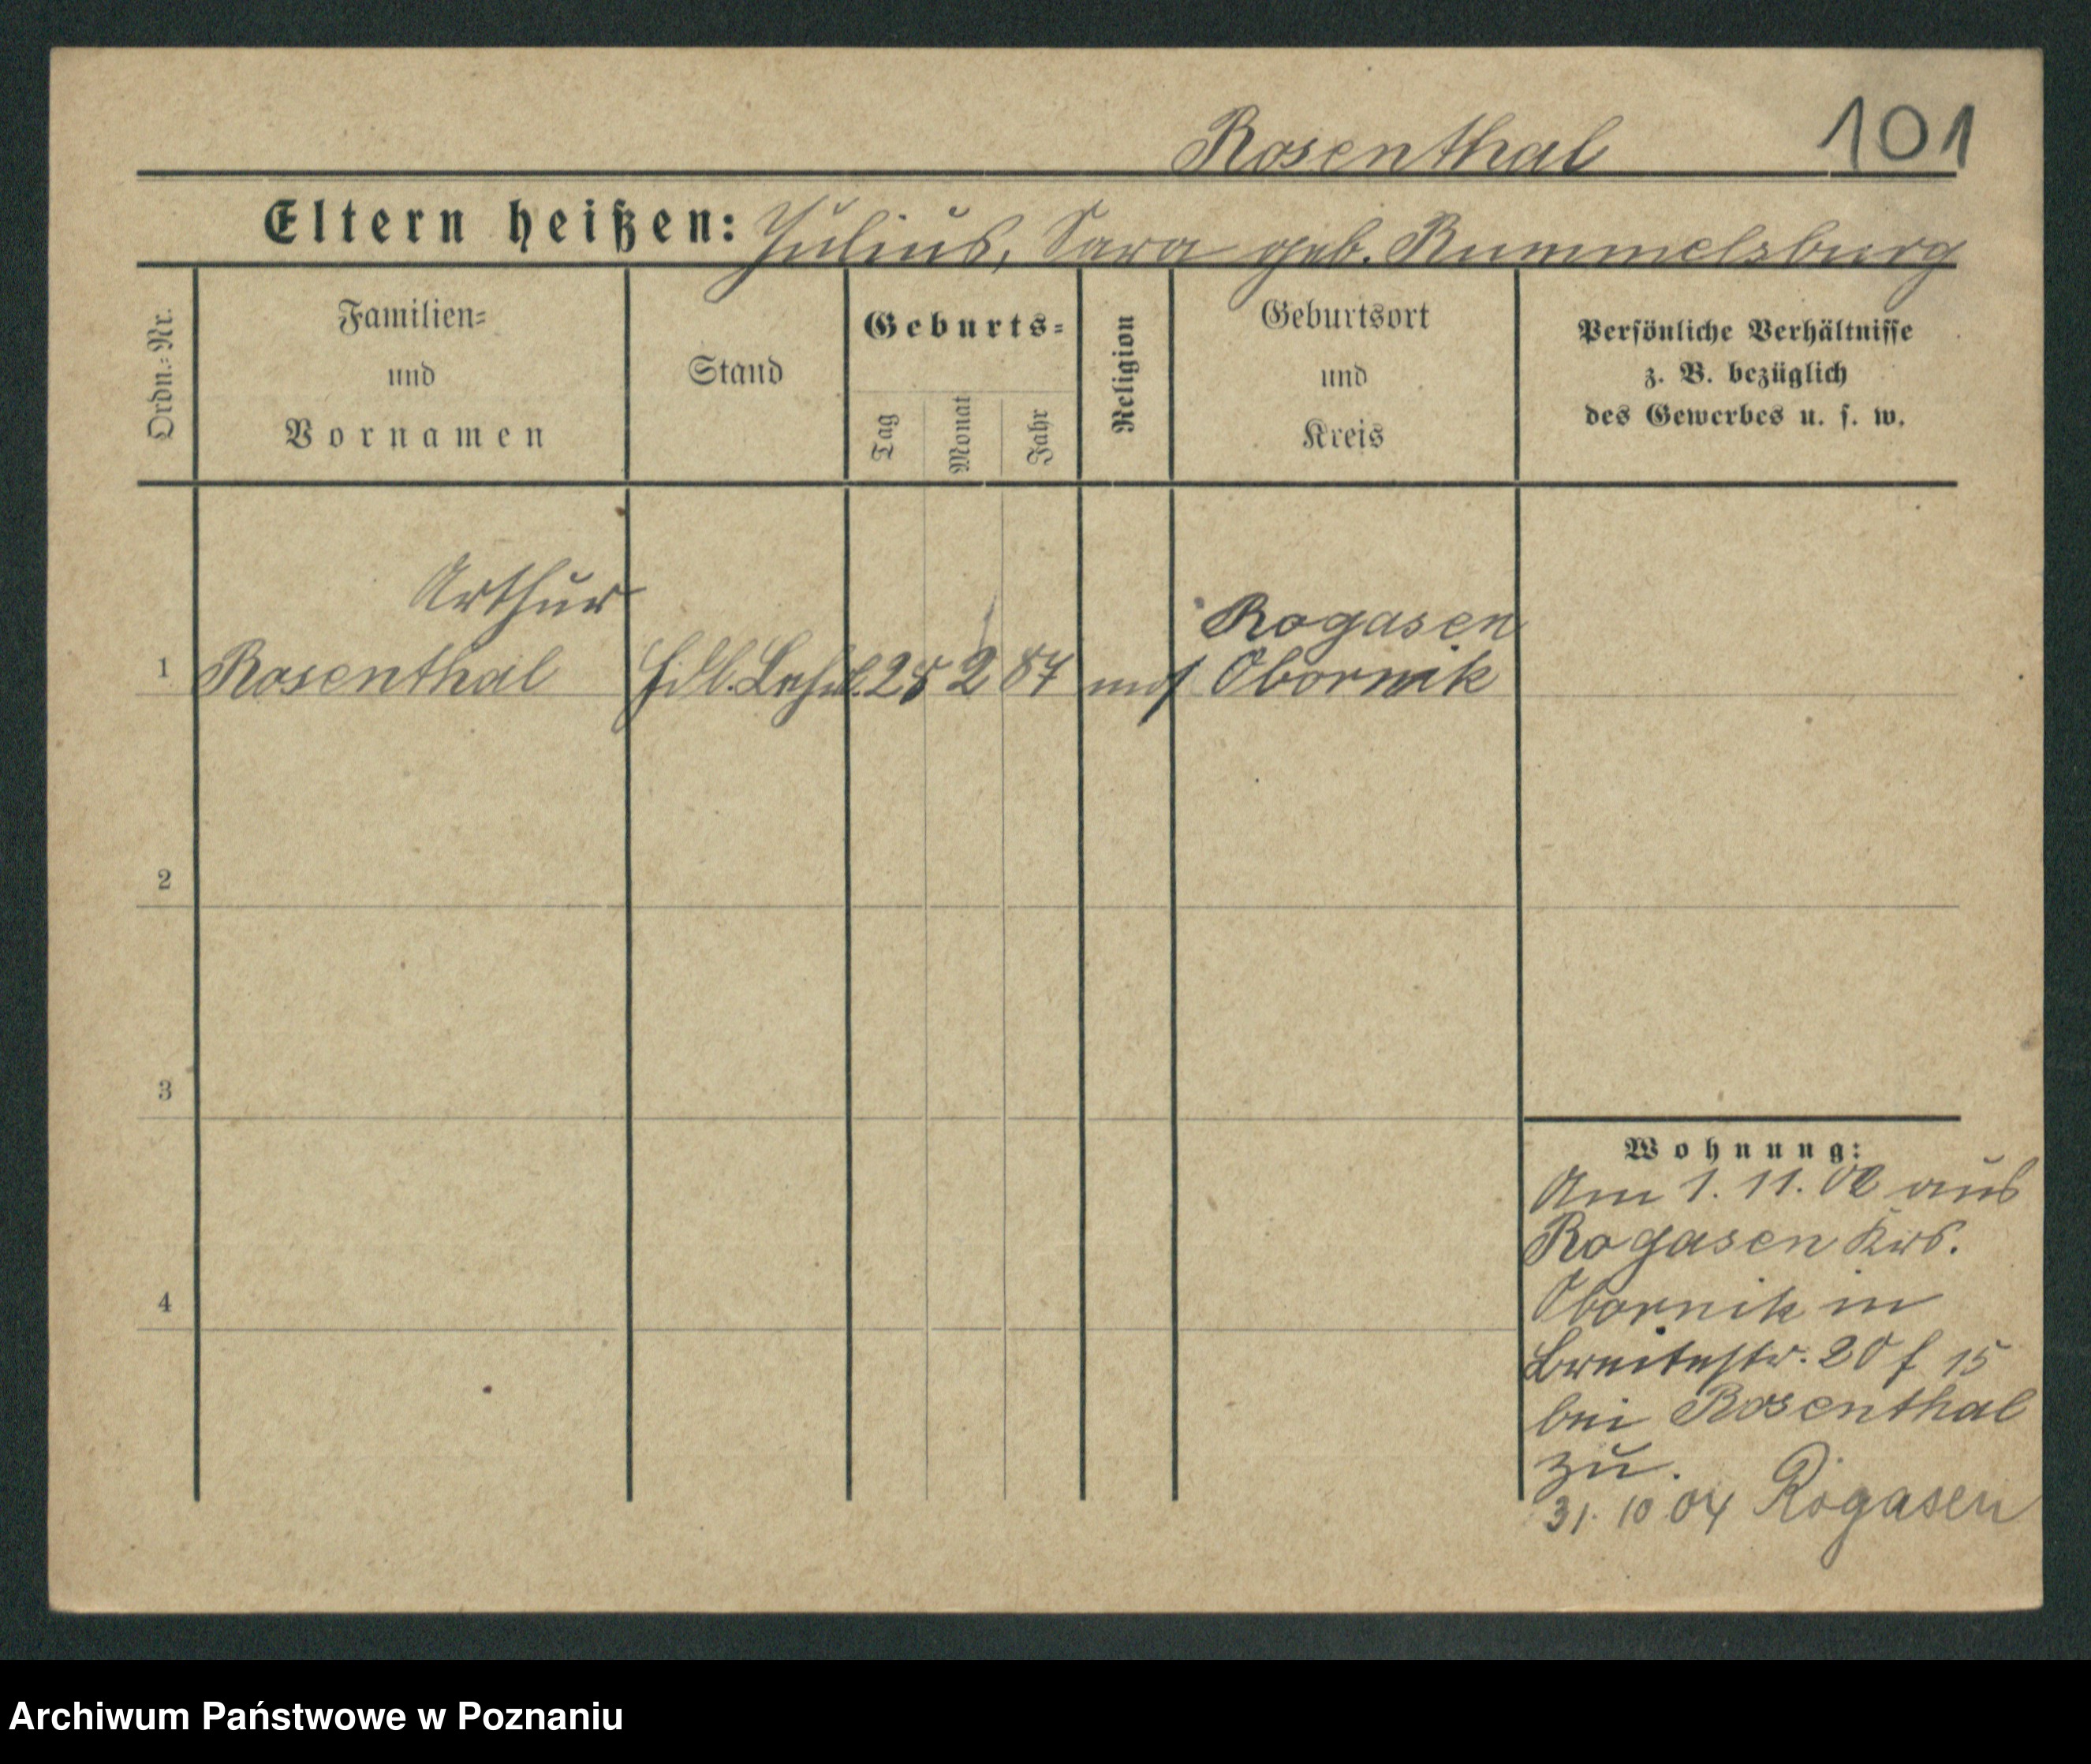 Rosenthal 101
Eltern heißen: Julius, Sara geb. Rummelsburg
Ordn.-Nr.
Familien-
und
Vornamen
Stand
Geburts-
Tag
Monat
Jahr
Religion
Geburtsort
und
Kreis
Persönliche Verhältnisse
z. B. bezüglich
des Gewerbes u. s. w.
Arthur
Rogasen
1 Rosenthal Hdl. Lehrl. 25 2 87 mos Obornik
2
3
4
Wohnung:
Am 1. 11. 02 aus
Rogasen Krs.
Obornik in
Breitestr. 20 f 15
bei Rosenthal
zu.
31. 10 04 Rogasen
Archiwum Państwowe w Poznaniu